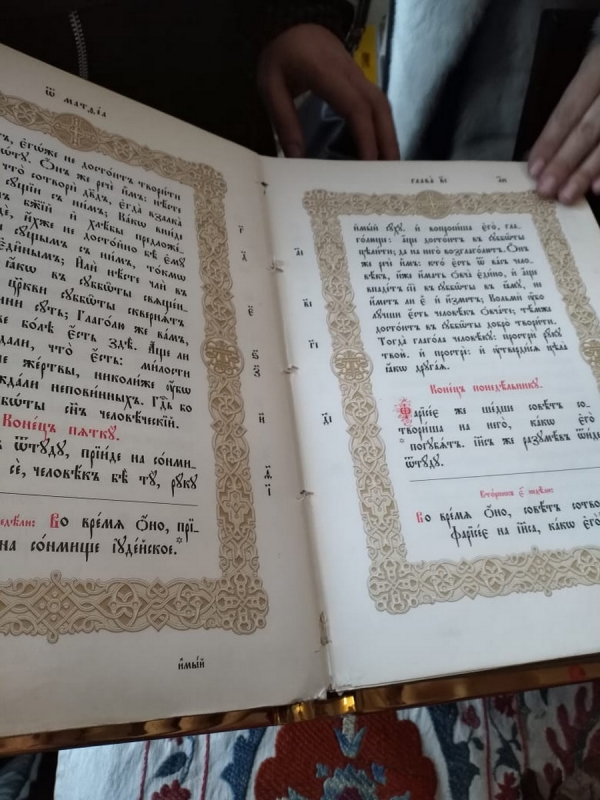 Ѿ МАТѲЕ́А
є҆гѡ́же не досто́итъ твори́ти
Ѻ҆́нъ же речѐ и҆̀мъ: нѣ́сте
что̀ сотворѝ дв҃дъ, є҆гда̀ взалка̀
съ ни́мъ; Ка́кѡ вни́де
бж҃їй и҆ хлѣ́бы предложе́_
и҆́хже не досто́йно бѣ̀ є҆мꙋ̀
съ ни́мъ, то́кмѡ
є҆ди̑нымъ; И҆лѝ нѣ́сте члѝ въ
ꙗ҆́кѡ въ сꙋббѡ̑ты свѧще́н_
цр҃кви сꙋббѡ̑ты сквернѧ́тъ
сꙋ́ть; Глаго́лю же ва́мъ,
бо́лѣ є҆́сть здѣ̀. А҆́ще ли
что̀ є҆́сть: ми́лости
же́ртвы, николи́же ᲂу҆́бѡ
непови́нныхъ. Гдⷭ҇ь бо
сꙋббѡ́ты сн҃ъ человѣ́ческїй.
Коне́цъ пѧткꙋ̀.
ѿтꙋ́дꙋ, прїи́де на со́нми_
сѐ, человѣ́къ бѣ̀ тꙋ̀, рꙋ́кꙋ
Во вре́мѧ ѻ҆́но, прї_
на со́нмище і҆ꙋде́йское.*
и҆мы́й
глава̀ в҃і
и҆мы́й сꙋ́хꙋ. и҆ вопроси́ша є҆го̀, гла_
го́люще: а҆́ще досто́итъ въ сꙋббѡ̑ты
цѣли́ти; да на него̀ возглаго́лютъ. Ѻ҆́нъ
же речѐ и҆̀мъ: кто̀ є҆́сть ѿ ва́съ чело_
вѣ́къ, и҆́же и҆́мать ѻ҆вча̀ є҆ди́но, и҆ а҆́ще
впаде́тъ сїѐ въ сꙋббѡ̑ты въ ꙗ҆́мꙋ, не
и҆́метъ ли є҆̀ и҆ и҆́зметъ; Кольмѝ ᲂу҆́бѡ
лꙋ́чши є҆́сть человѣ́къ ѻ҆вча́те; тѣ́мже
досто́итъ въ сꙋббѡ̑ты добро̀ твори́ти.
Тогда̀ глаго́ла человѣ́кꙋ: прострѝ рꙋ́кꙋ
твою̀. и҆ прострѐ: и҆ ᲂу҆тверди́сѧ цѣла̀
ꙗ҆́кѡ дрꙋга́ѧ.
Коне́цъ понедѣ́льникꙋ.
Фарїсе́є же ше́дше совѣ́тъ со_
твори́ша на него̀, ка́кѡ є҆го̀
*погꙋ́бѧтъ. І҆и҃съ же разꙋмѣ́въ ѿи́де
ѿтꙋ́дꙋ.
Вто́рникъ є҃ недѣ́ли:
Во вре́мѧ ѻ҆́но, совѣ́тъ сотво_
фарїсе́є на і҆и҃са, ка́кѡ є҆го̀